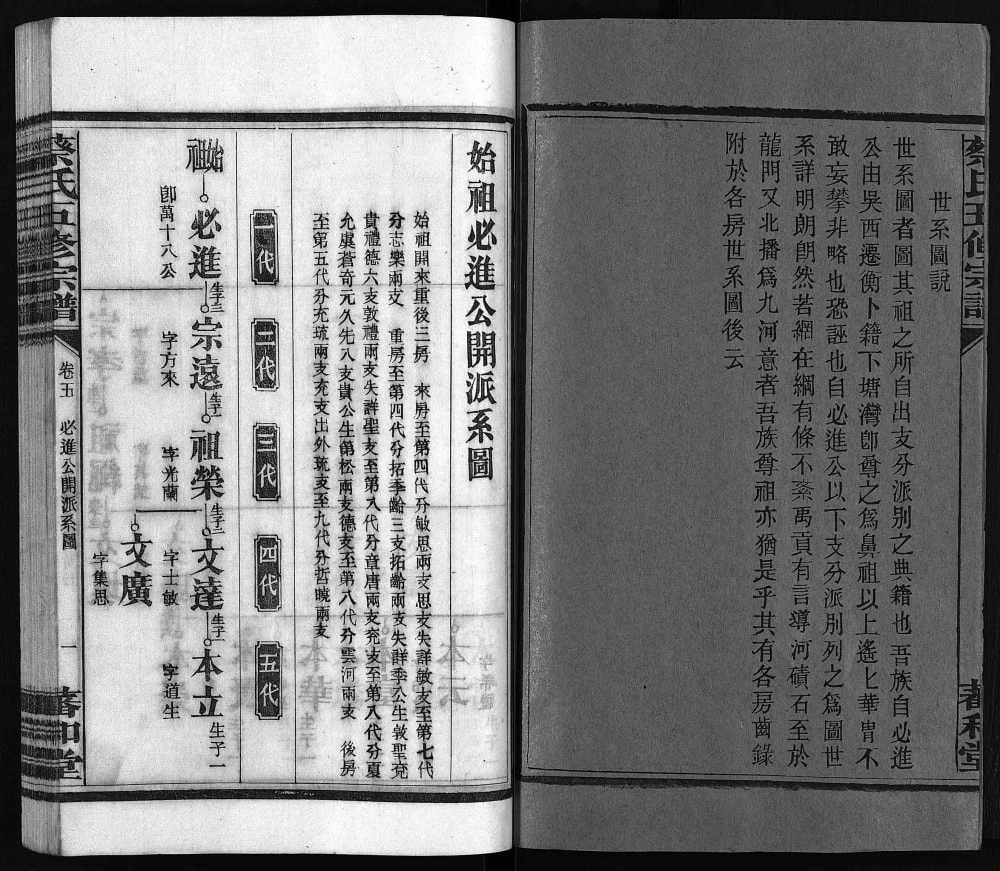 世系圖說
世系圖者圖其祖之所自出支分派别之典籍也吾族自必進
公由吳西遷衡卜籍下塘灣卽尊之爲鼻祖以上遙七華胄不
敢妄攀非略也恐誣也自必進公以下支分派別列之爲圖世
系詳明朗朗然若網在綱有條不紊禹貢有言導河磧石至於
龍門又北播爲九河意者吾族尊祖亦猶是乎其有各房齒錄
附於各房世系圖後云
蔡氏五修宗譜
蓍和堂
始祖必進公開派系圖
始祖開來重後三房 來房至第四代分敏思兩支思支失詳敏支至第七代
分志樂兩支 重房至第四代分拓季齡三支拓齡兩支失詳季公生敦聖兗
貴禮德六支敦禮兩支失詳聖支至第八代分章唐兩支兗支至第八代分夏
允虞蒼奇元久先八支貴公生第松兩支德支至第八代分雲河兩支 後房
至第五代分充琉兩支充支出外琉支至九代分哲曉兩支
一代 二代 三代 四代 五代
始祖 必進 生子三 宗遠 生子一 祖榮 生子二 文達 生子一 本立 生子一
卽萬十八公 字方來 字光蘭 字士敏 字道生
文廣
字集思
蔡氏五修宗譜 卷五 必進公開派系圖 一 蓍和堂